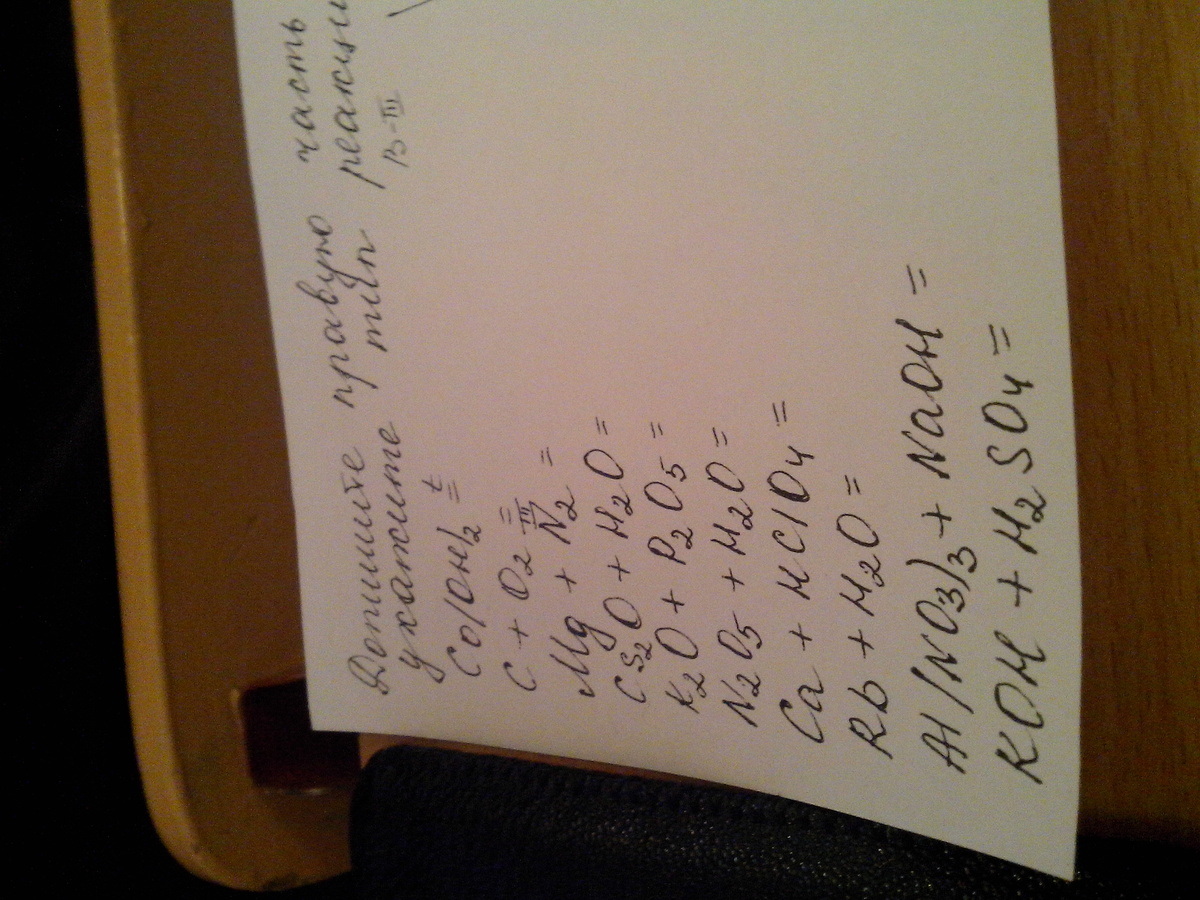 Допишите правую часть
укажите тип реакци
В-III
Co(OH)2 =t
C + O2 =
Mg + N2 =
III
Cs2O + H2O =
K2O + P2O5 =
N2O5 + H2O =
Ca + HClO4 =
Rb + H2O =
Al(NO3)3 + NaOH =
KOH + H2SO4 =